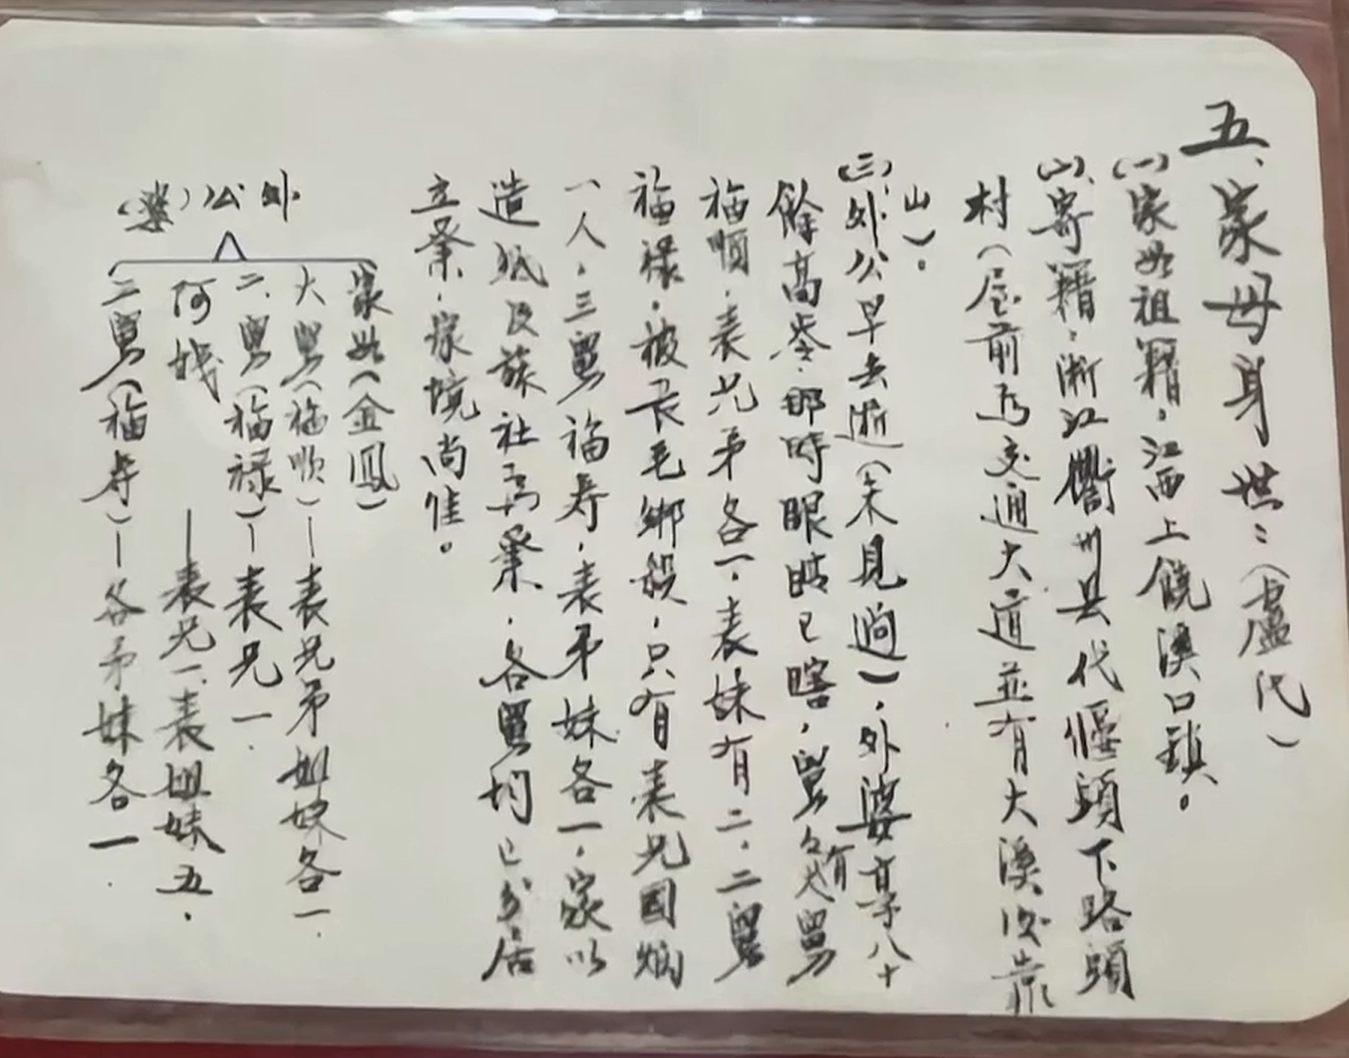 五、家母身世:(盧氏)
(一)家母祖籍,江西上饒溪口鎮。
(二)寄籍,浙江衢州县代堰頭下路頭
村(屋前為交通大道並有大溪後靠
山)。
(三)外公早去逝(未見過),外婆享八十
餘高岺,那時眼睛已瞎,舅父有大舅
福順,表兄弟各一,表妹有二,二舅
福祿,被長毛綁殺,只有表兄國炳
一人,三舅福寿,表弟妹各一,家以
造紙及蔴社為業,各舅均已分居
立業,家境尚佳。
外公(婆)
家母(金鳳)
大舅(福順)—表兄弟姐妹各一
二舅(福祿)—表兄一
阿姨 —表兄一、表姐妹五
三舅(福寿)—各弟妹各一